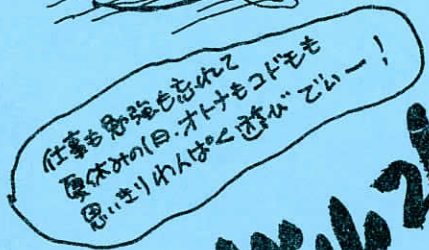 仕事も勉強も忘れて
夏休みの1日、オトナもコドモも
思いきりわんぱく遊びでぃー！